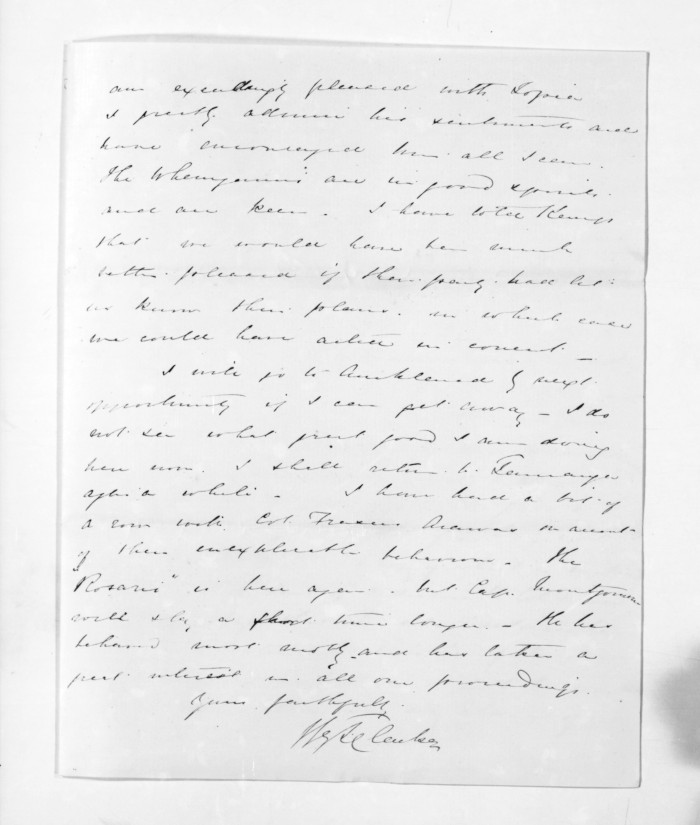 am exceedingly pleased with Topia
I greatly admire his sentiments and
have encouraged him all I can.
The Whanganuis are in good spirits
and are keen. I have told Kemp
that we would have been much
better pleased if their party had let
us know their plans. in which case
we could have acted in concert _
I will go to Auckland by next
opportunity if I can get away _ I do
not see what great good I am doing
here now. I shall return to Tauranga
after a while _ I have had a bit of
a row with Col. Frasers Arawas on account
of their inexplicable behaviour. The
"Rosario" is here again. but Capt. Montgomerie
will stay a short time longer. _ He has
behaved most and has taken a
great interest in all our proceedings.
Yours faithfully
H. T. Clarke